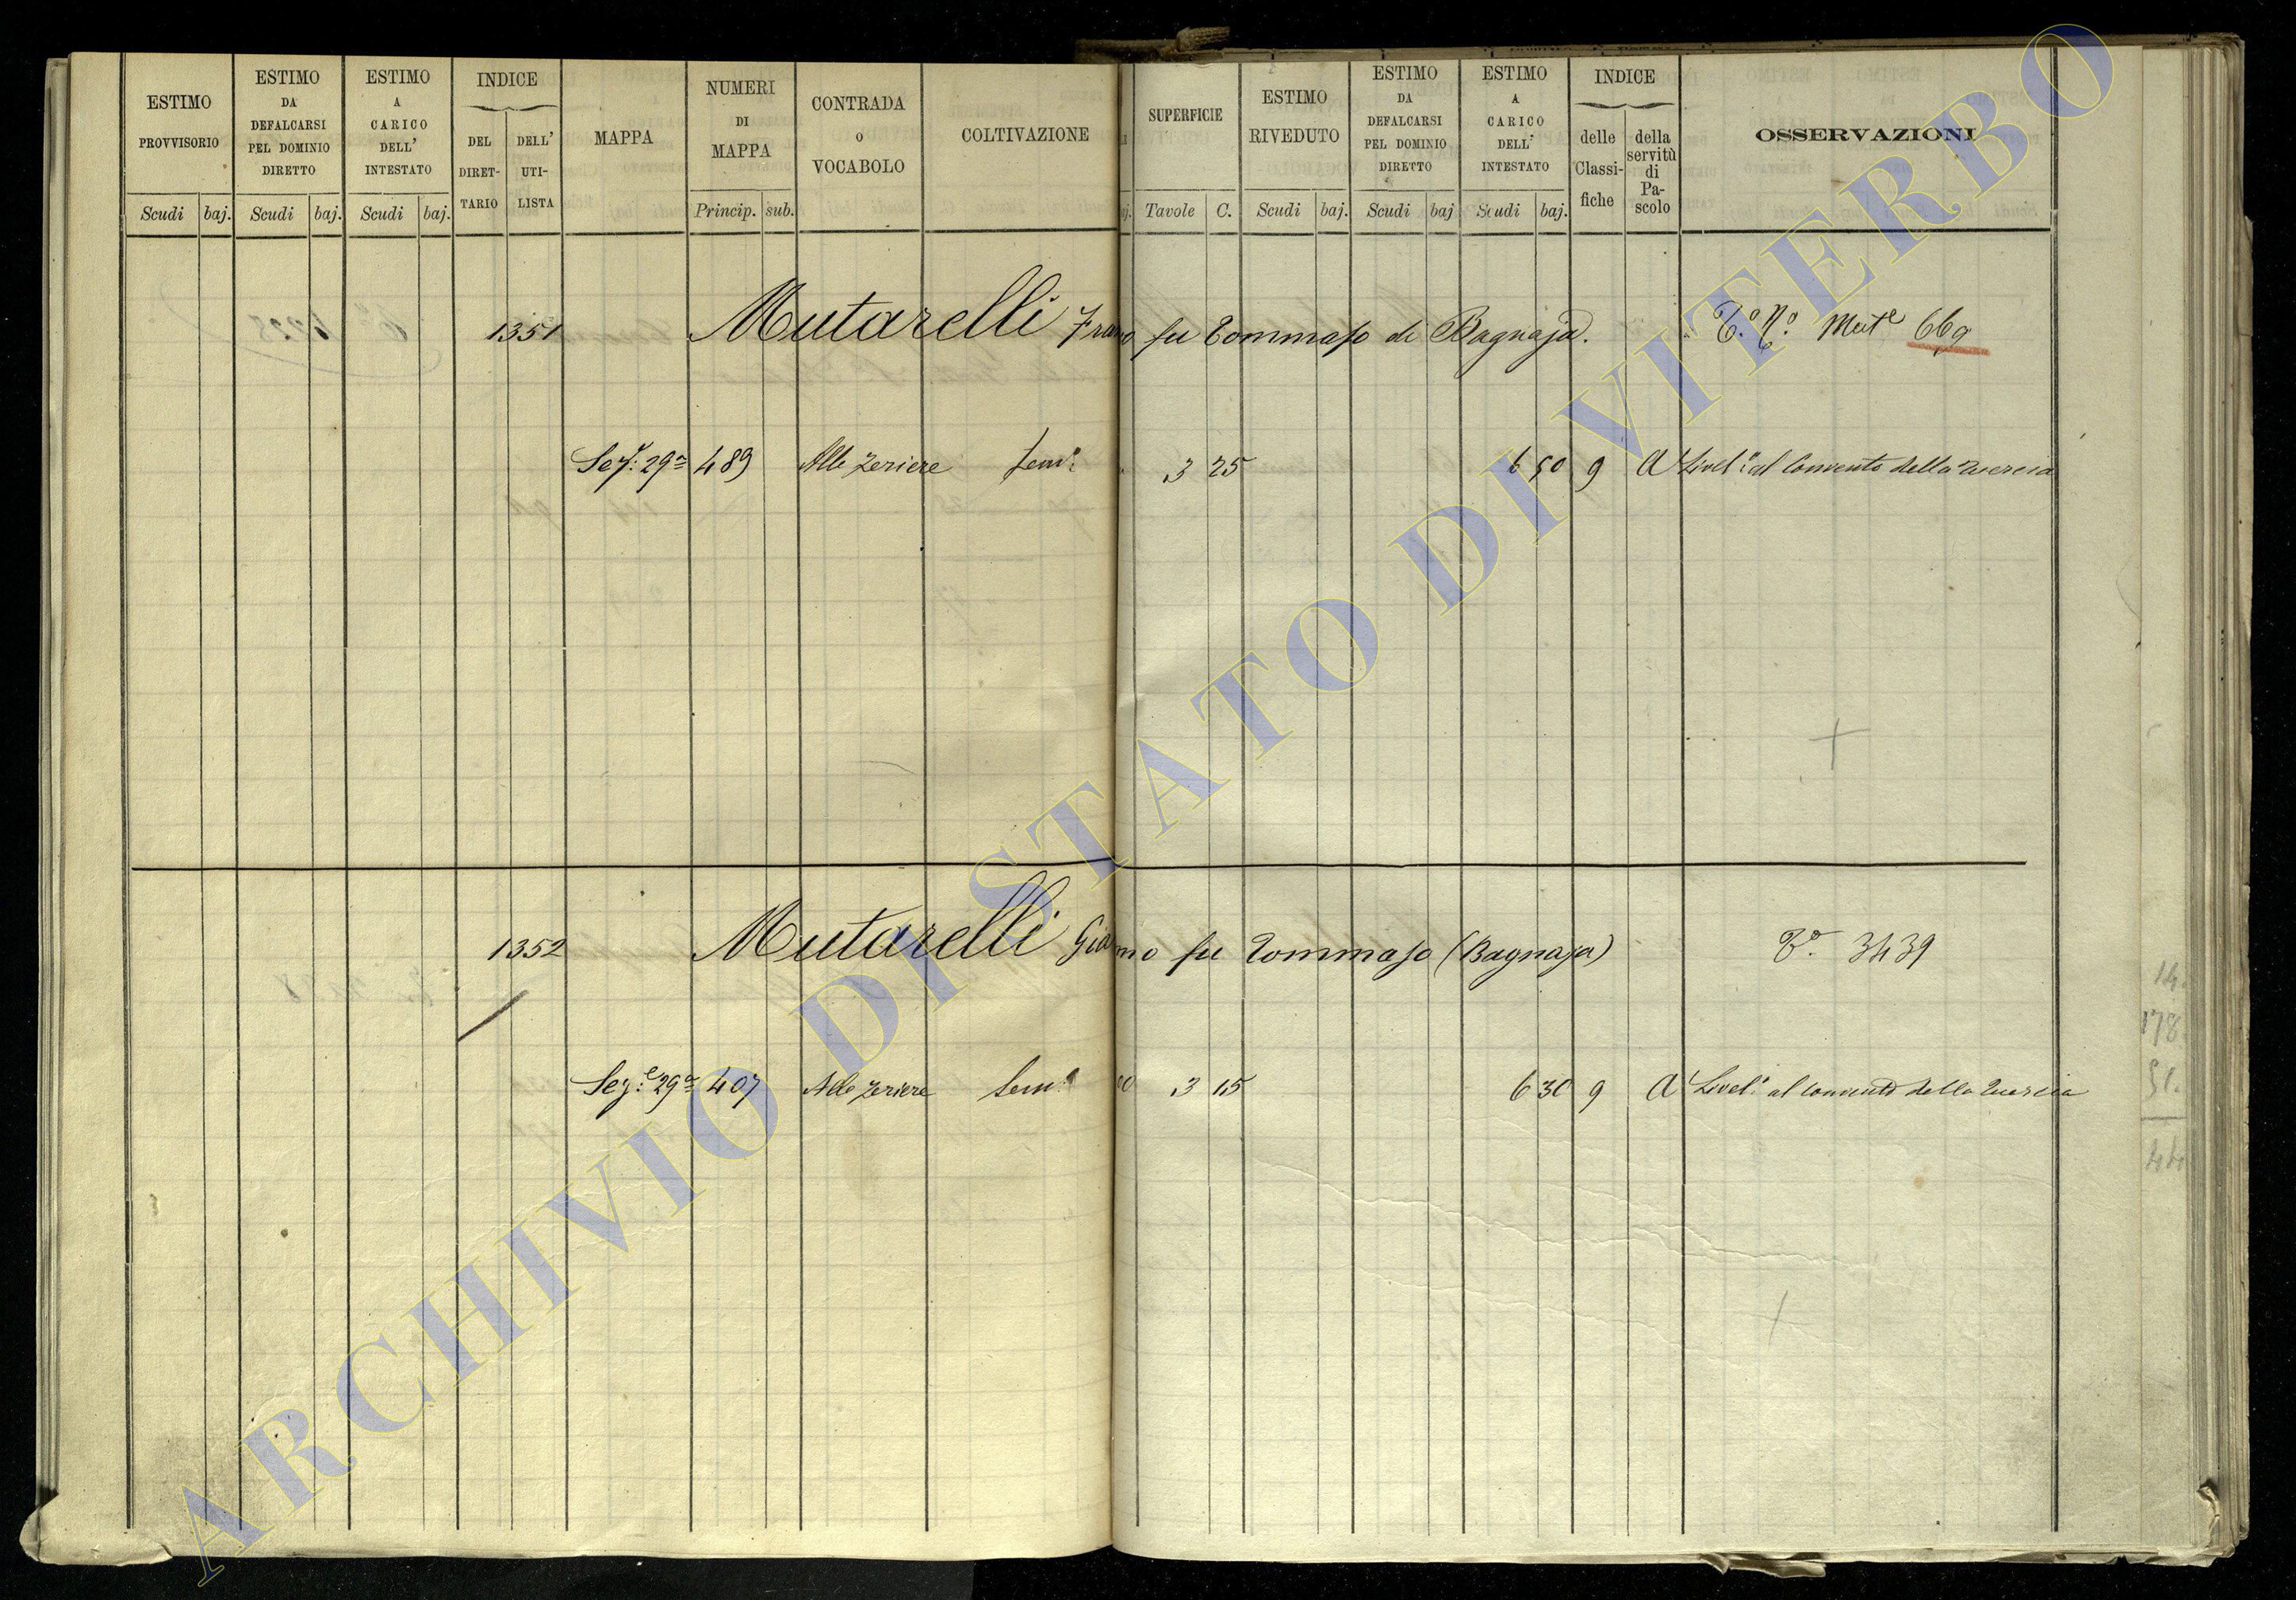 ESTIMO PROVVISORIO
Scudi baj.
ESTIMO DA DEFALCARSI PEL DOMINIO DIRETTO
Scudi baj.
ESTIMO A CARICO DELL' INTESTATO
Scudi baj.
INDICE
DEL DIRET-TARIO
DELL' UTI-LISTA
MAPPA
NUMERI DI MAPPA
Princip. sub.
CONTRADA O VOCABOLO
COLTIVAZIONE
SUPERFICIE
Tavole C.
ESTIMO RIVEDUTO
Scudi baj.
ESTIMO DA DEFALCARSI PEL DOMINIO DIRETTO
Scudi baj
ESTIMO A CARICO DELL' INTESTATO
Scudi baj.
INDICE
delle Classi-fiche
della servitù di Pa-scolo
OSSERVAZIONI
1351 Mutarelli fu Tommaso di Bagnaja. 669
Sez: 29a 489 Alle Zeriere Semo 3 25 6 50 9 A Livelo al Convento della Quercia
1352 Mutarelli fu Tommaso (Bagnaja) To. 3439
Seze: 29a 407 Alle Zeriere Semo 3 15 6 30 9 A Livelo al Convento della Quercia
14.
178
51.
44
ARCHIVIO DI STATO DI VITERBO